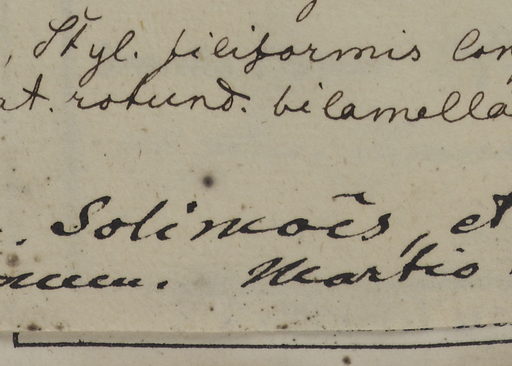 , Styl. filiformis lon
at. rotund. bilamella
. Solimoës, et
Martio